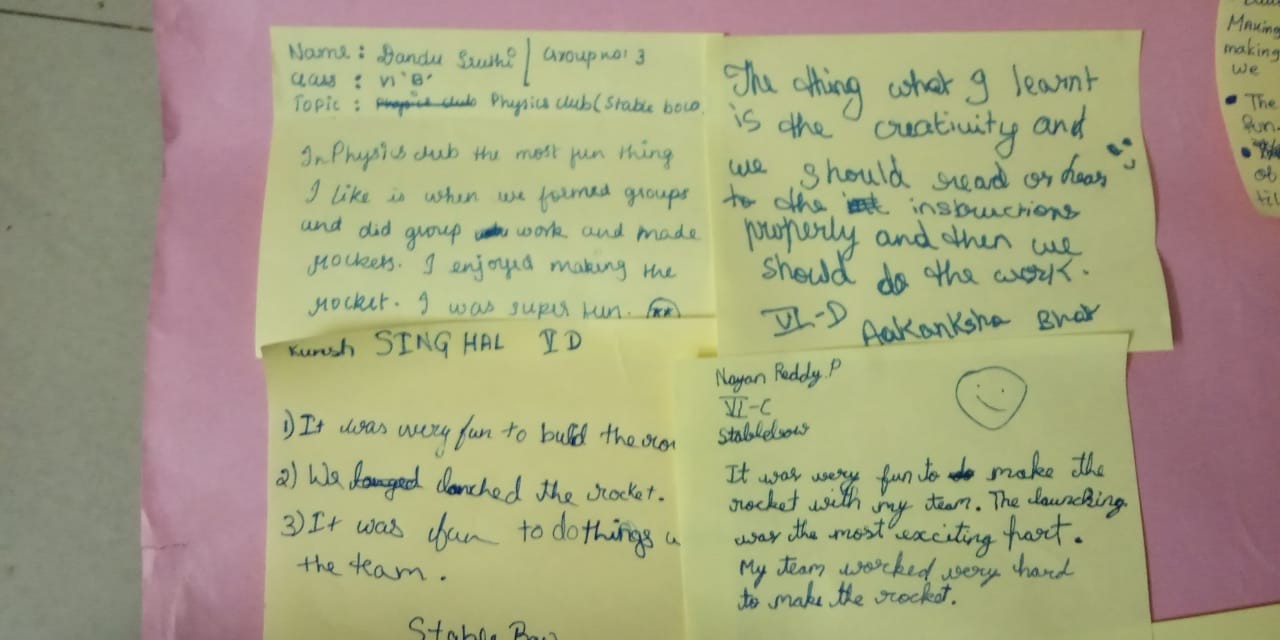 Name : Dandu Sruthi | Group no: 3
Class : VI 'B'
Topic : Physics club (Stable bow
In Physics club the most fun thing
I like is when we formed groups
and did group work and made
rockets. I enjoyed making the
rocket. I was super fun.
The thing what I learnt
is the creativity and
we should read or hear
to the instructions
properly and then we
should do the work.
VI-D Aakanksha Bhat
SINGHAL V D
1) It was very fun to build the
2) We lanched the rocket.
3) It was fun to do things
the team.
Stable Bow
Nayan Reddy.P
VI-C
Stablebow
It was very fun to make the
rocket with my team. The launching
was the most exciting part.
My team worked very hard
to make the rocket.
Making
making
we
• The
fun
of